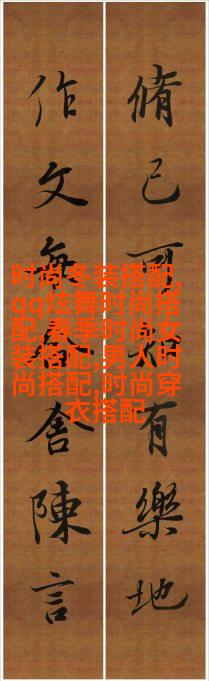 脩己可有樂地
作文每舍陳言
时尚冬装搭配,
qq炫舞时尚搭
配,春季时尚女
装搭配,男人时
尚搭配,时尚穿
衣搭配